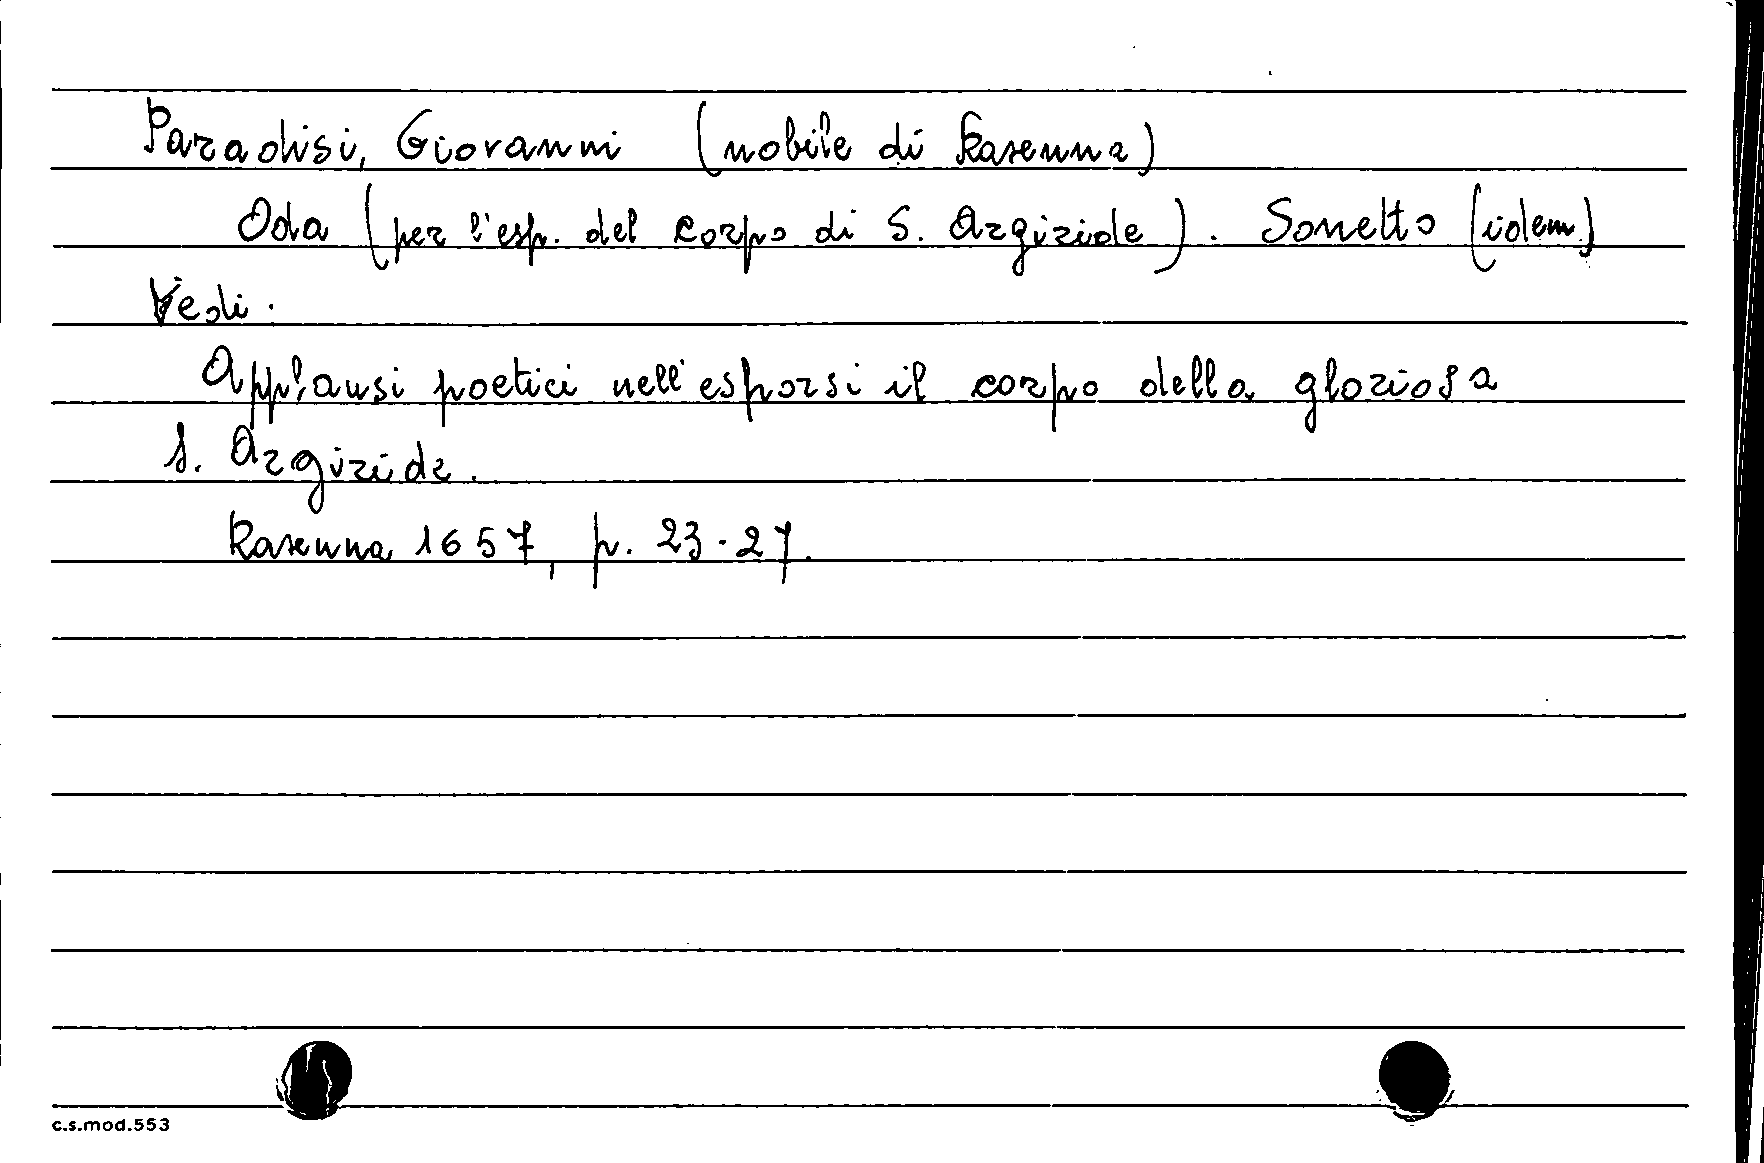 Paradisi, Giovanni (nobile di Ravenna)
Oda (per l'esp. del corpo di S. Argiride). Sonetto (idem)
Vedi.
Applausi poetici nell'esporsi il corpo della gloriosa
S. Argiride.
Ravenna 1657, p. 23-27.
c.s.mod.553